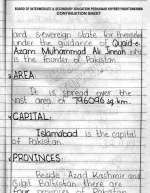 BOARD OF INTERMEDIATE & SECONDARY EDUCATION PESHAWAR KHYBER PAKHTUNKHWA
CONTINUATION SHEET
and sovereign state for themselves
under the guidance of Quaid-e-
Azam Muhammad Ali Jinnah who
is the founder of Pakistan
AREA:
It is spread over the
vast area of 796096 sq.km.
CAPITAL:
Islamabad is the capital
of Pakistan.
PROVINCES:
Beside Azad Kashmir and
Gilgit Baltistan there are
four provinces of Pakistan